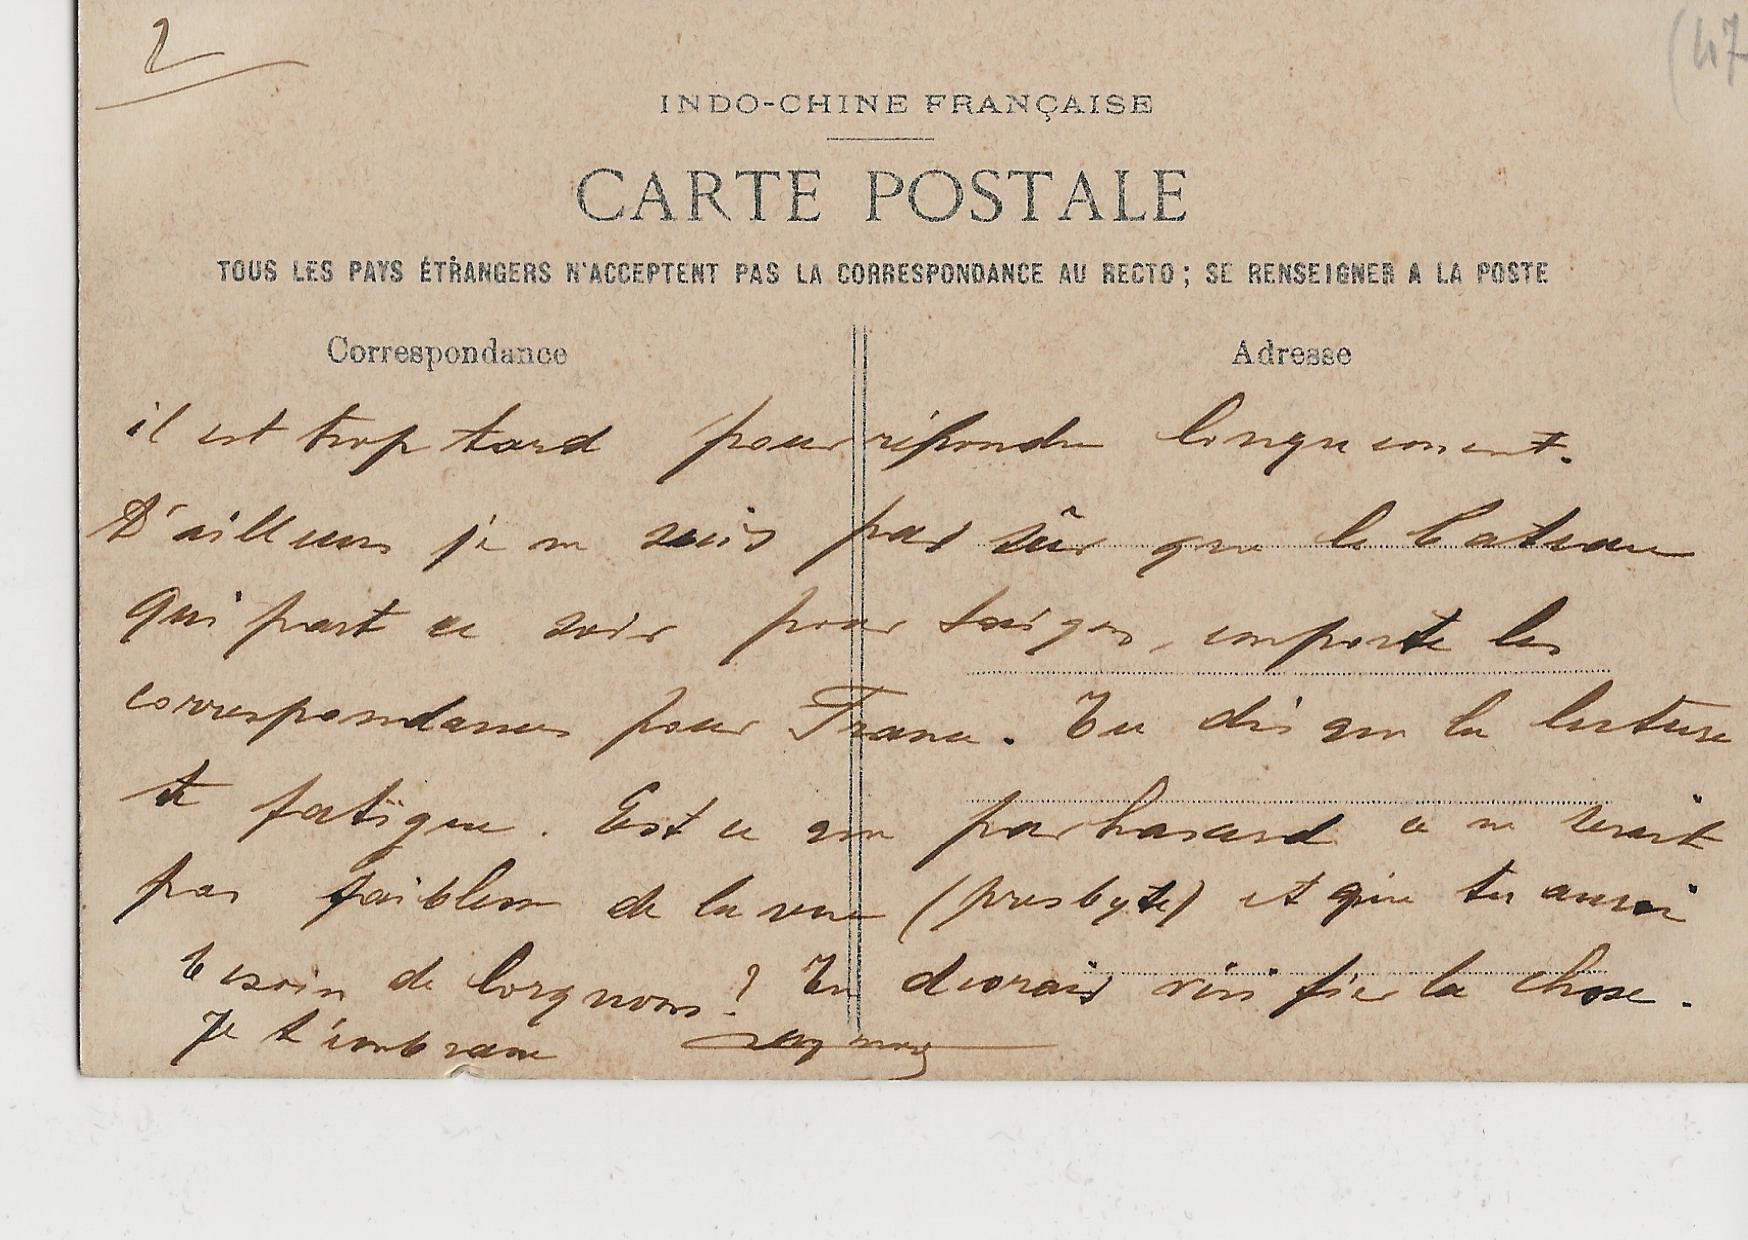 2
(47
INDO-CHINE FRANÇAISE
CARTE POSTALE
TOUS LES PAYS ÉTRANGERS N'ACCEPTENT PAS LA CORRESPONDANCE AU RECTO ; SE RENSEIGNER A LA POSTE
Correspondance Adresse
il est trop tard pour répondre longuement.
D'ailleurs je ne suis pas sûr que le bateau
qui part ce soir pour Saigon, emporte les
correspondances pour France. Tu dis que la lecture
te fatigue. Est ce que par hasard ce ne serait
pas faiblesse de la vue (presbyte) et que tu aurais
besoin de lorgnons ? Tu devrais vérifier la chose.
Je t'embrasse